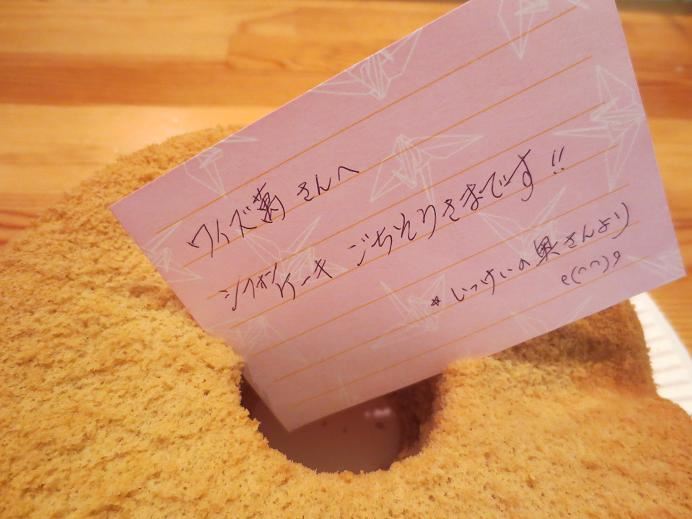 ワイズ菊さんへ
シフォンケーキ ごちそうさまです!!
*いっけいの奥さんより
e(^^)g